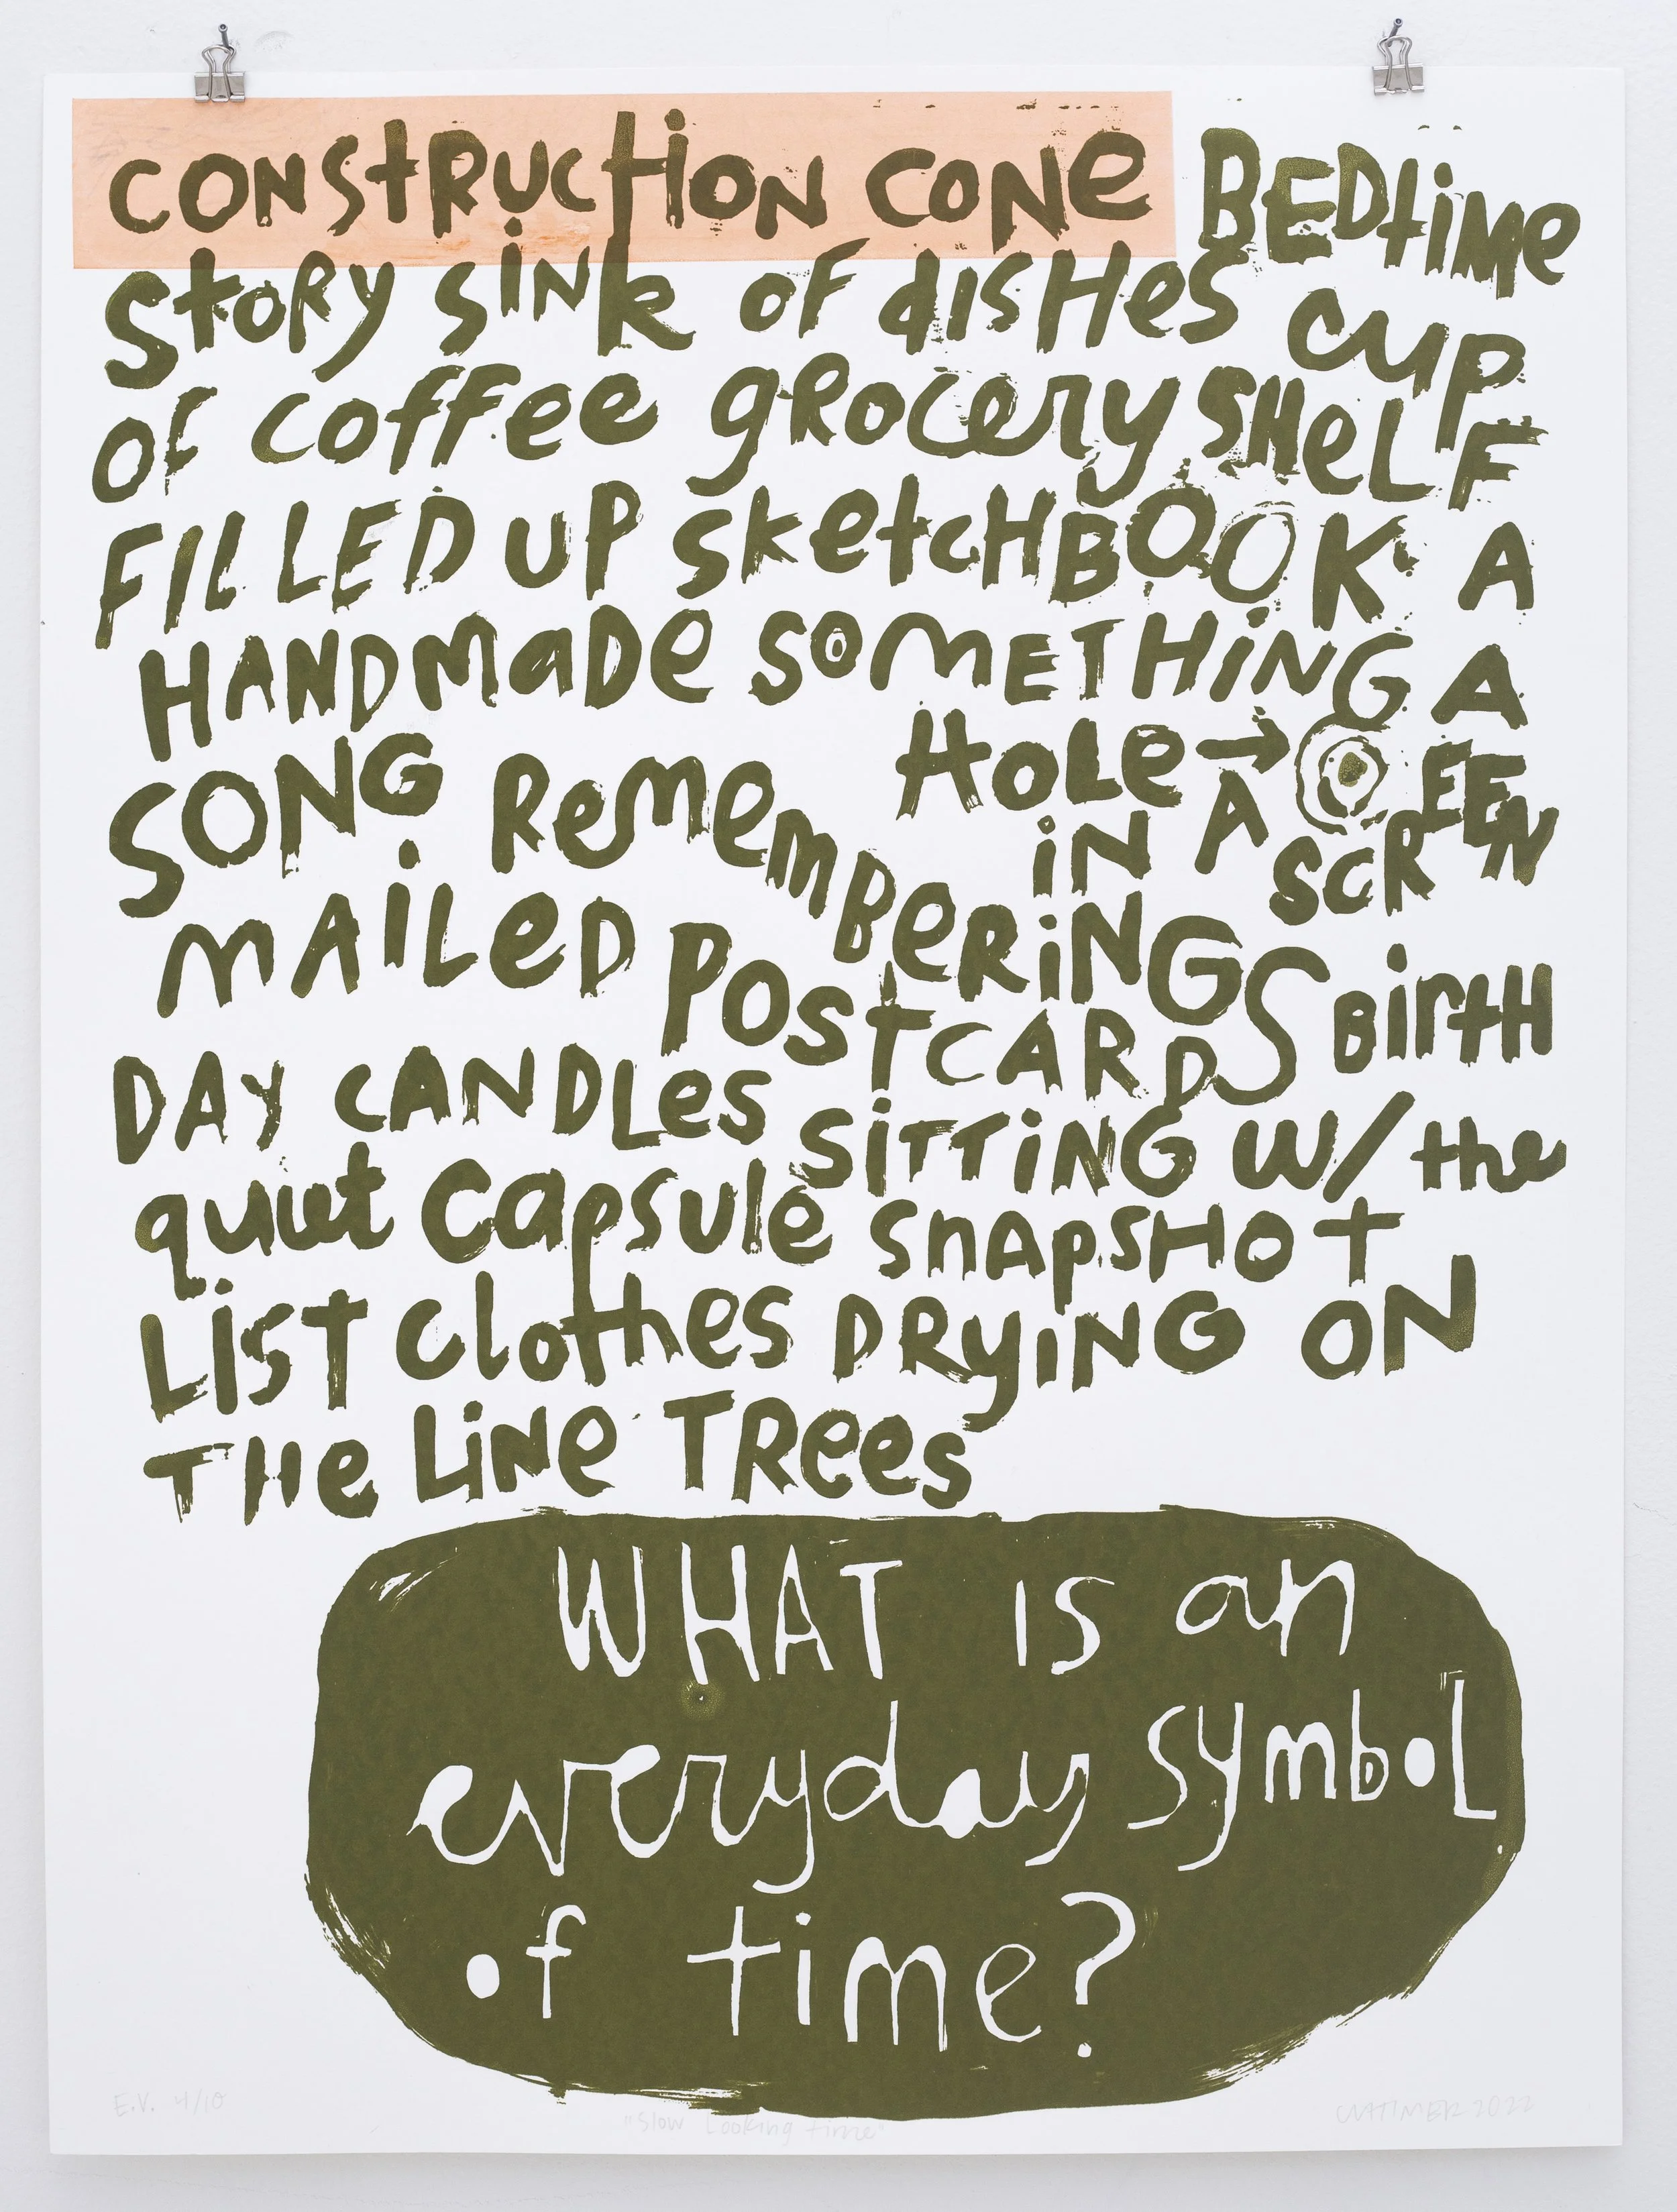 CONSTRUCTION CONE BEDtiME
StORY SiNk OF dISHeS CUP
OF coffee gROCery SHeLF
FILLED UP SketcHBOOK A
HANDMaDe SOMETHiNG A
SONG ReMemBeRiNGS HOLe → iN A SCREEN
MAiLeD POSTCARDS BirtH
DAY CANDLes SiTTiNG W/ the
quiet Capsule SnApSHOt
LiST Clothes DRYiNG ON
THe LiNe TRees
WHAT IS an
everyday SymboL
of time?
E.V. 4/10
"Slow Looking time"
2022